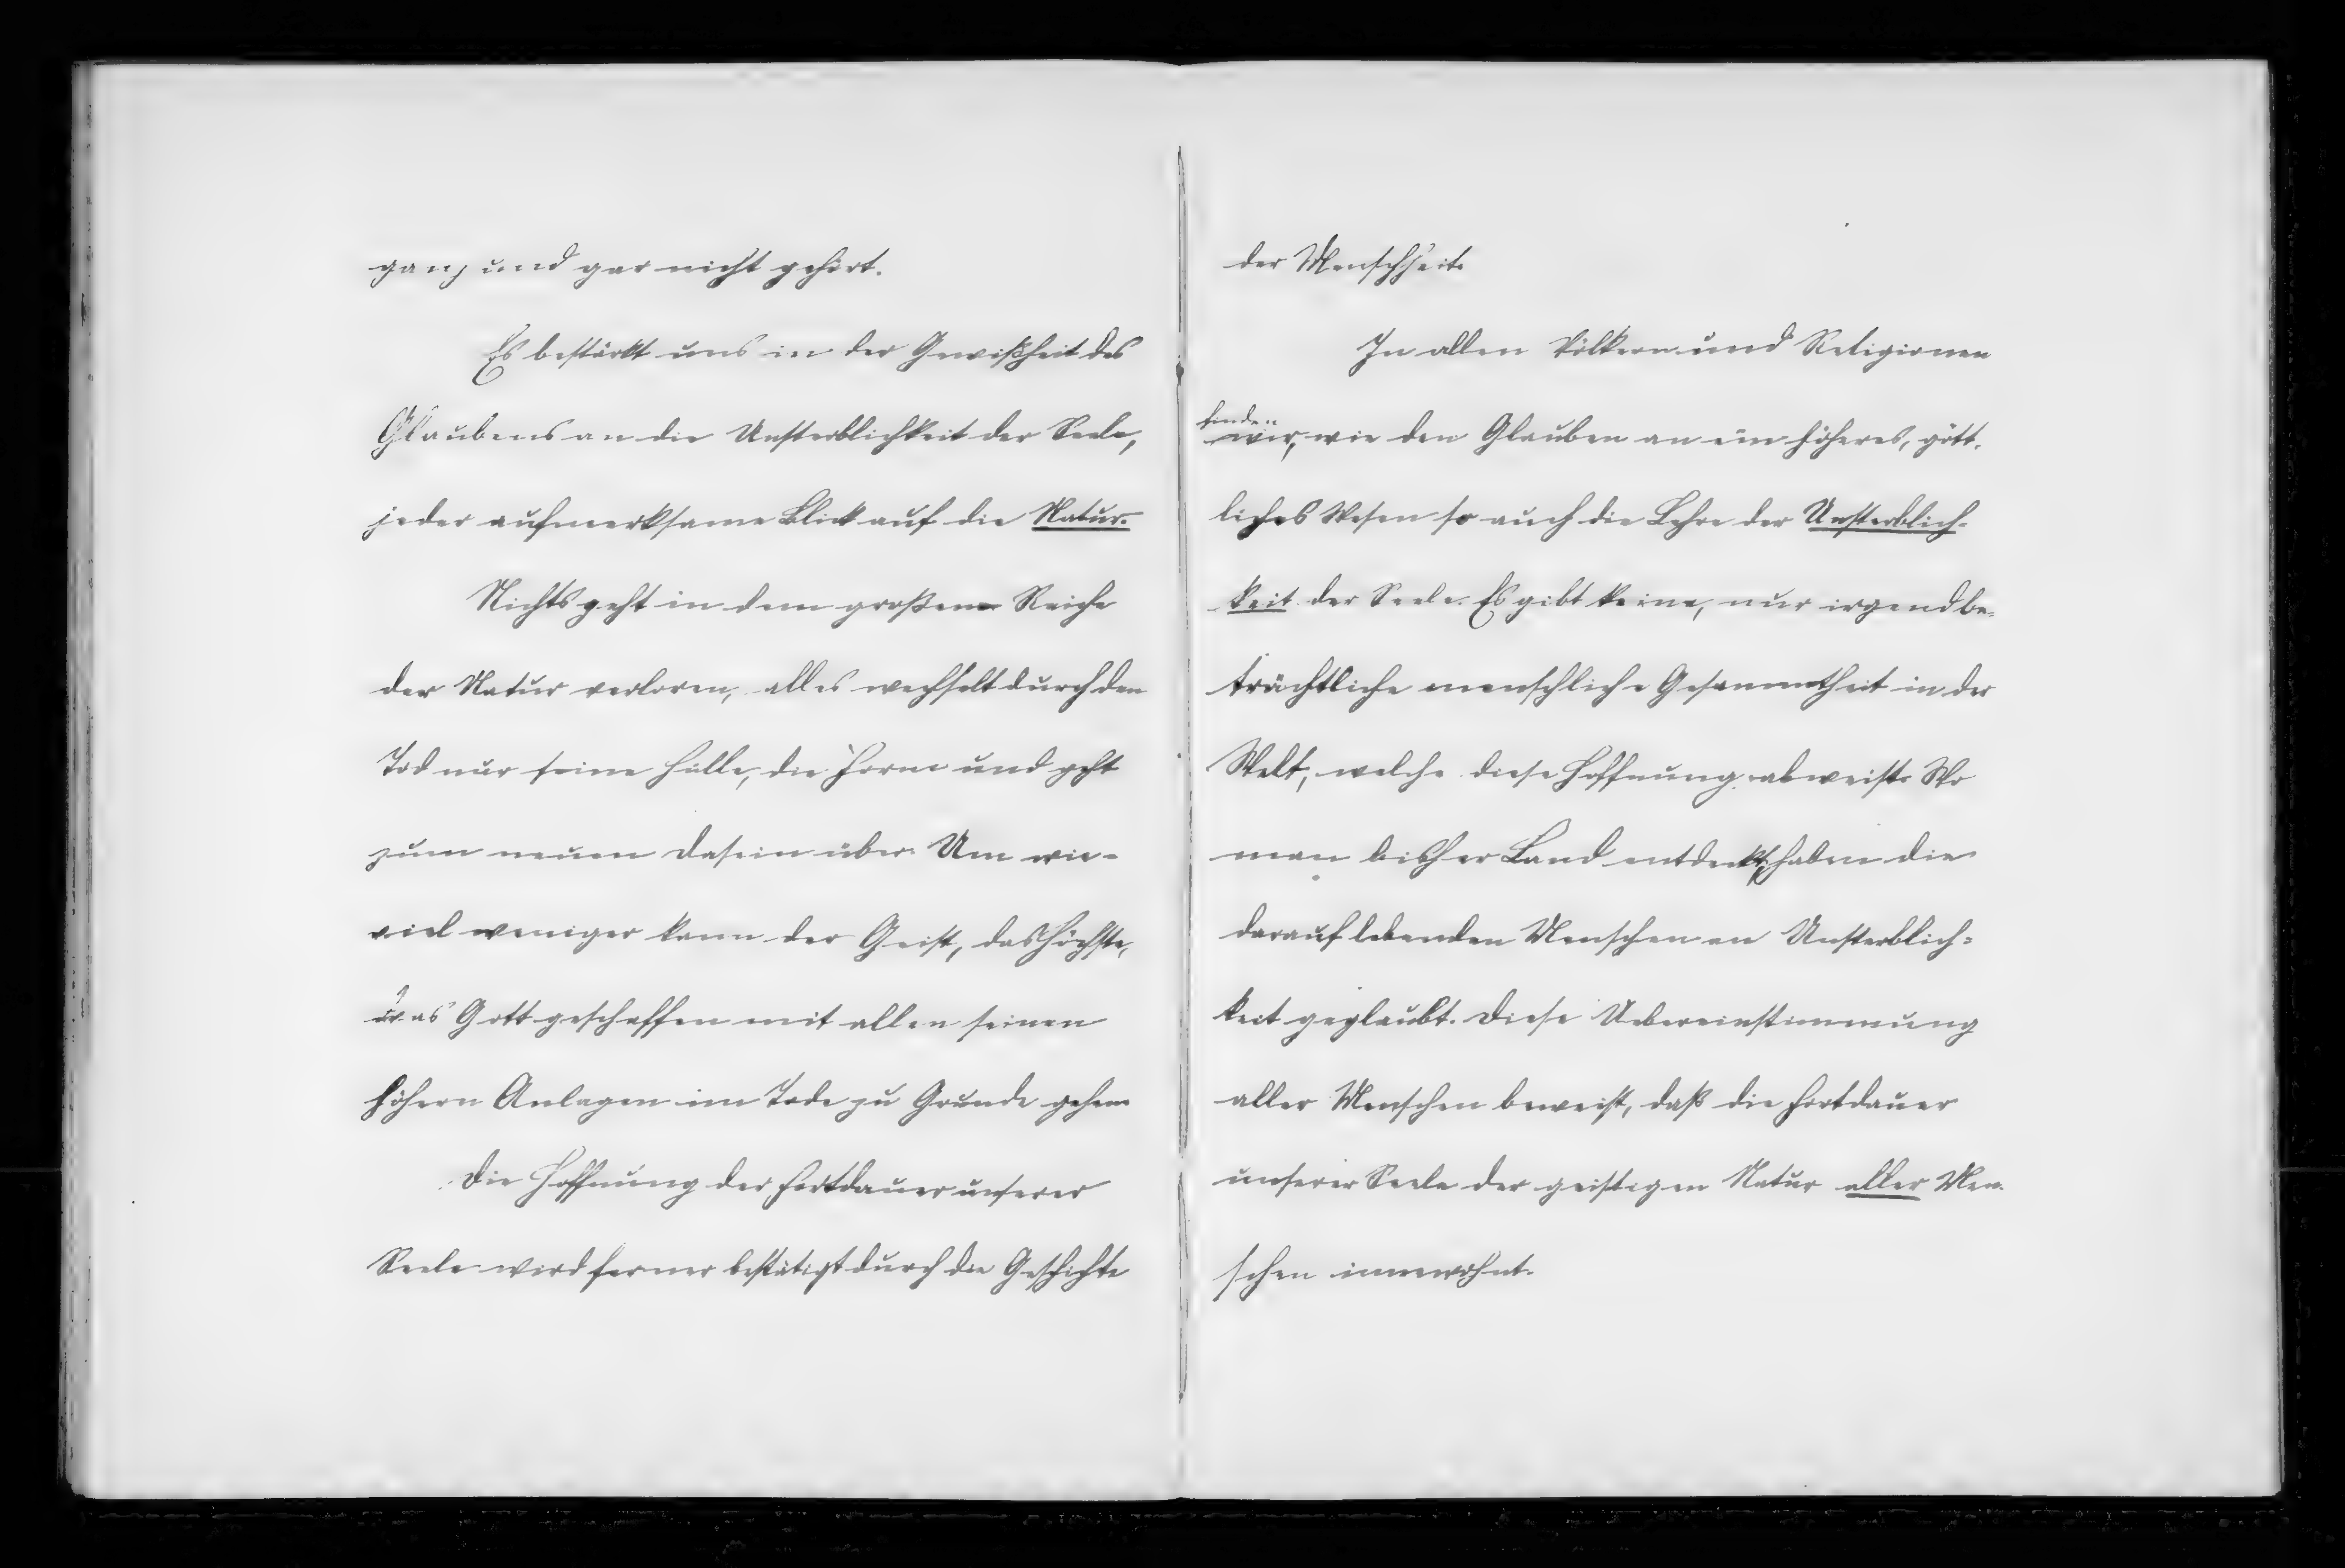 ganz und gar nicht gehört.
Es bestärkt uns in der Gewißheit des
Glaubens an die Unsterblichkeit der Seele,
jeder aufmerksame Blick auf die Natur.
Nichts geht in dem großen Reiche
der Natur verloren, alles wechselt durch den
Tod nur seine Hülle, die Form und geht
zum neuen Dasein über. Um wie-
viel weniger kann der Geist, das Höchste,
was Gott geschaffen mit allen seinen
höhern Anlagen im Tode zu Grunde gehen.
Die Hoffnung der Fortdauer unserer
Seele wird ferner bestätigt durch die Geschichte
der Menschheit.
In allen Völkern und Religionen
finden
wir, wie den Glauben an ein höheres, gött-
liches Wesen so auch die Lehre der Unsterblich-
keit der Seele. Es gibt keine, nur irgend be-
trächtliche menschliche Gesammtheit in der
Welt, welche diese Hoffnung abweist. Wo
man bisher Land entdeckt, haben die
darauf lebenden Menschen an Unsterblich-
keit geglaubt. Diese Uebereinstimmung
aller Menschen beweist, daß die Fortdauer
unserer Seele der geistigen Natur aller Men-
schen innewohnt.